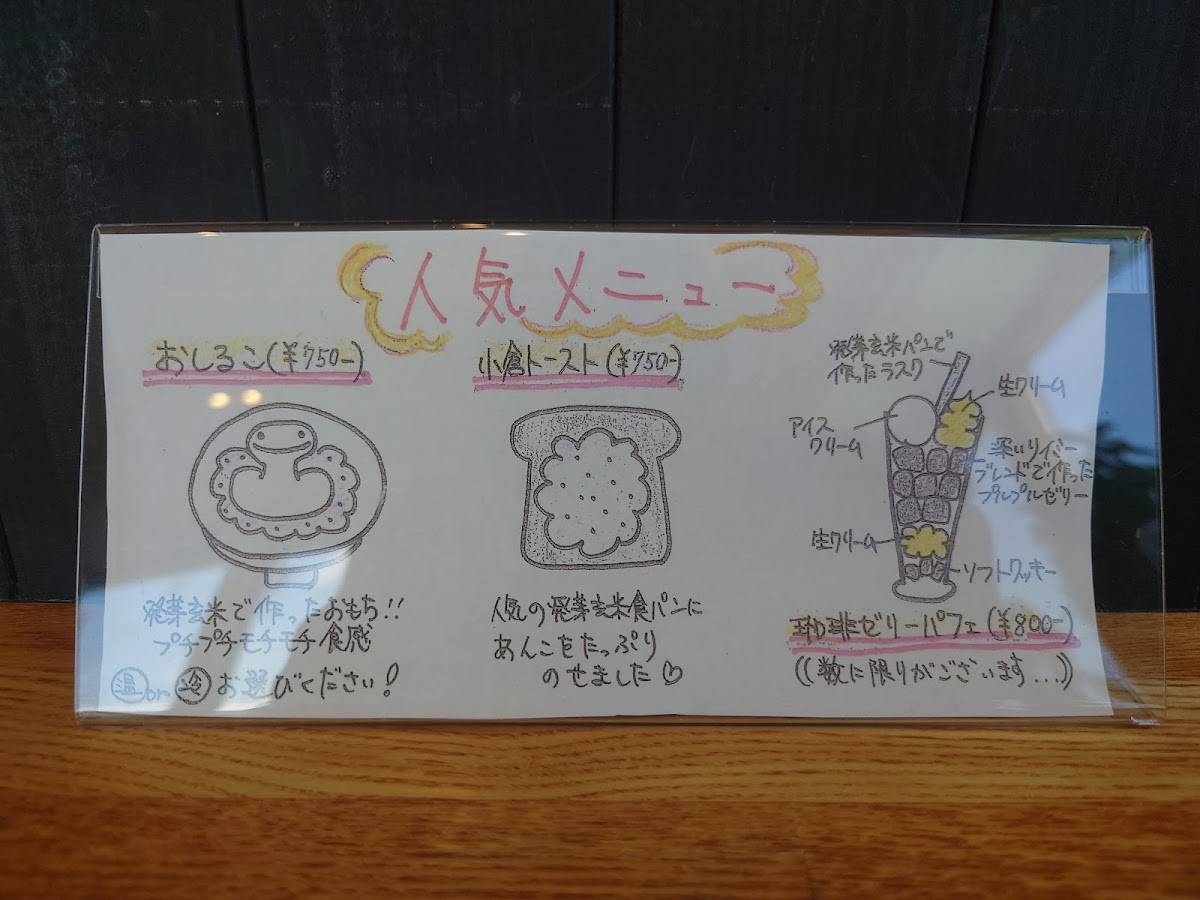 人気メニュー
おしるこ(¥750-)
発芽玄米で作ったおもち!!
プチプチモチモチ食感
温or冷お選びください!
小倉トースト(¥750-)
人気の発芽玄米食パンに
あんこをたっぷり
のせました♡
発芽玄米パンで
作ったラスク
生クリーム
アイス
クリーム
深いりバー
ブレンドで作った
プルプルゼリー
生クリーム
ソフトクッキー
珈琲ゼリーパフェ(¥800-)
((数に限りがございます...))